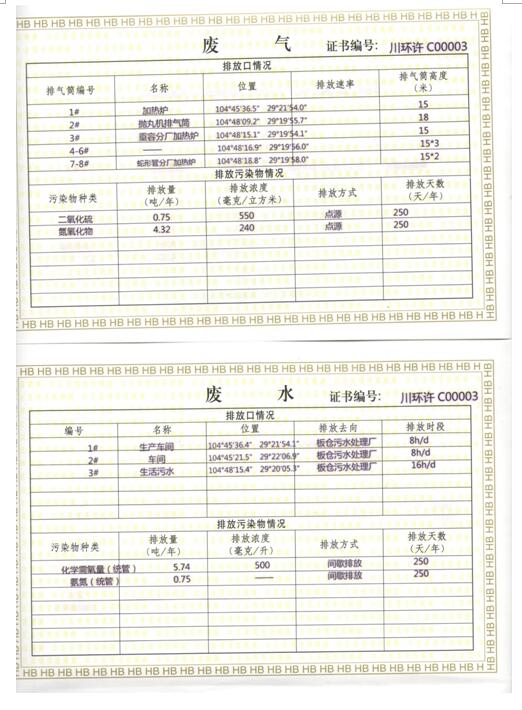 HB HB HB HB HB HB HB HB HB HB HB HB HB HB HB HB HB HB HB HB HB HB HB HB HB HB
废 气 证书编号: 川环许 C00003
排放口情况
排气筒编号 名称 位置 排放速率 排气筒高度(米)
1# 加热炉 104°45'36.5" 29°21'54.0" 15
2# 抛丸机排气筒 104°48'09.2" 29°19'55.7" 18
3# 重容分厂加热炉 104°48'15.1" 29°19'54.1" 15
4-6# —— 104°48'16.9" 29°19'56.0" 15*3
7-8# 蛇形管分厂加热炉 104°48'18.8" 29°19'58.0" 15*2
排放污染物情况
污染物种类 排放量(吨/年) 排放浓度(毫克/立方米) 排放方式 排放天数(天/年)
二氧化硫 0.75 550 点源 250
氮氧化物 4.32 240 点源 250
废 水 证书编号: 川环许 C00003
排放口情况
编号 名称 位置 排放去向 排放时段
1# 生产车间 104°45'36.4" 29°21'54.1" 板仓污水处理厂 8h/d
2# 车间 104°45'21.5" 29°22'06.9" 板仓污水处理厂 8h/d
3# 生活污水 104°48'15.4" 29°20'05.3" 板仓污水处理厂 16h/d
排放污染物情况
污染物种类 排放量(吨/年) 排放浓度(毫克/升) 排放方式 排放天数(天/年)
化学需氧量(统管) 5.74 500 间歇排放 250
氨氮(统管) 0.75 —— 间歇排放 250